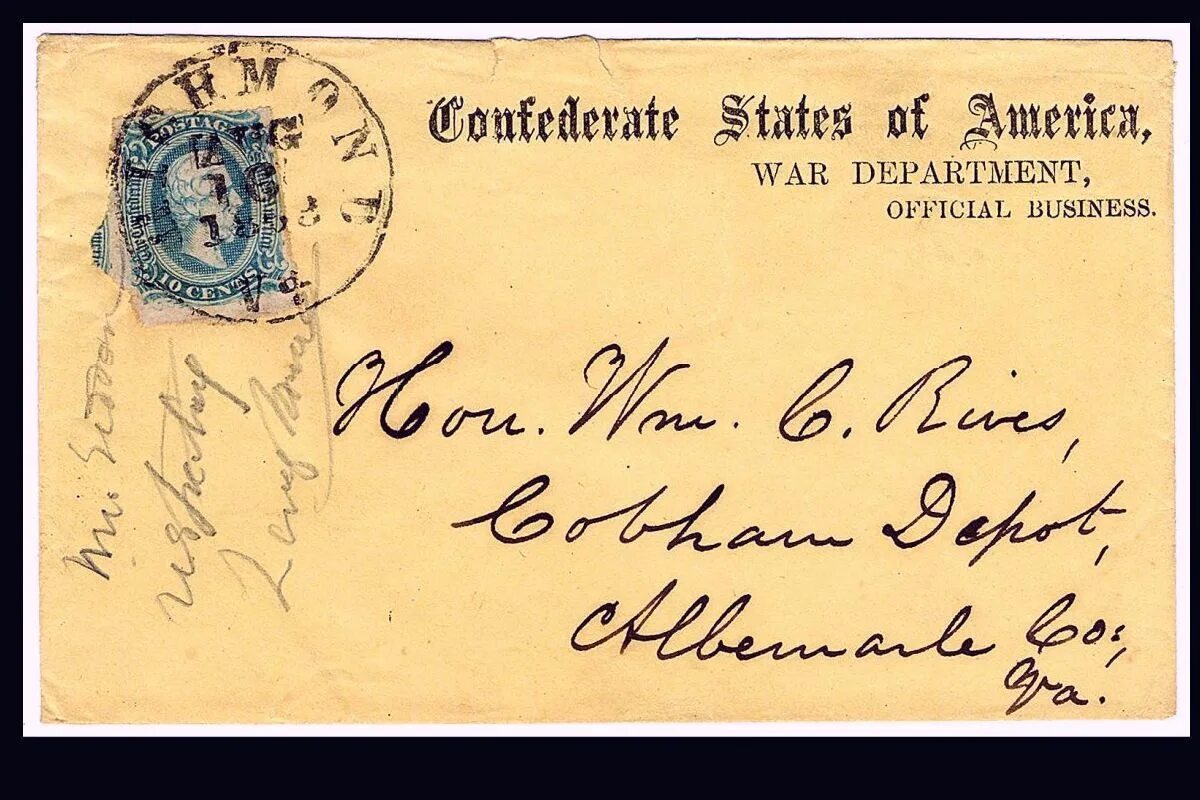 Confederate States of America,
WAR DEPARTMENT,
OFFICIAL BUSINESS.
RICHMOND
AUG
1863
Va.
POSTAGE
10 CENTS
Hon. Wm. C. Rives,
Cobham Depot,
Albemarle Co:,
Va.
Mr. Seddon
respecting